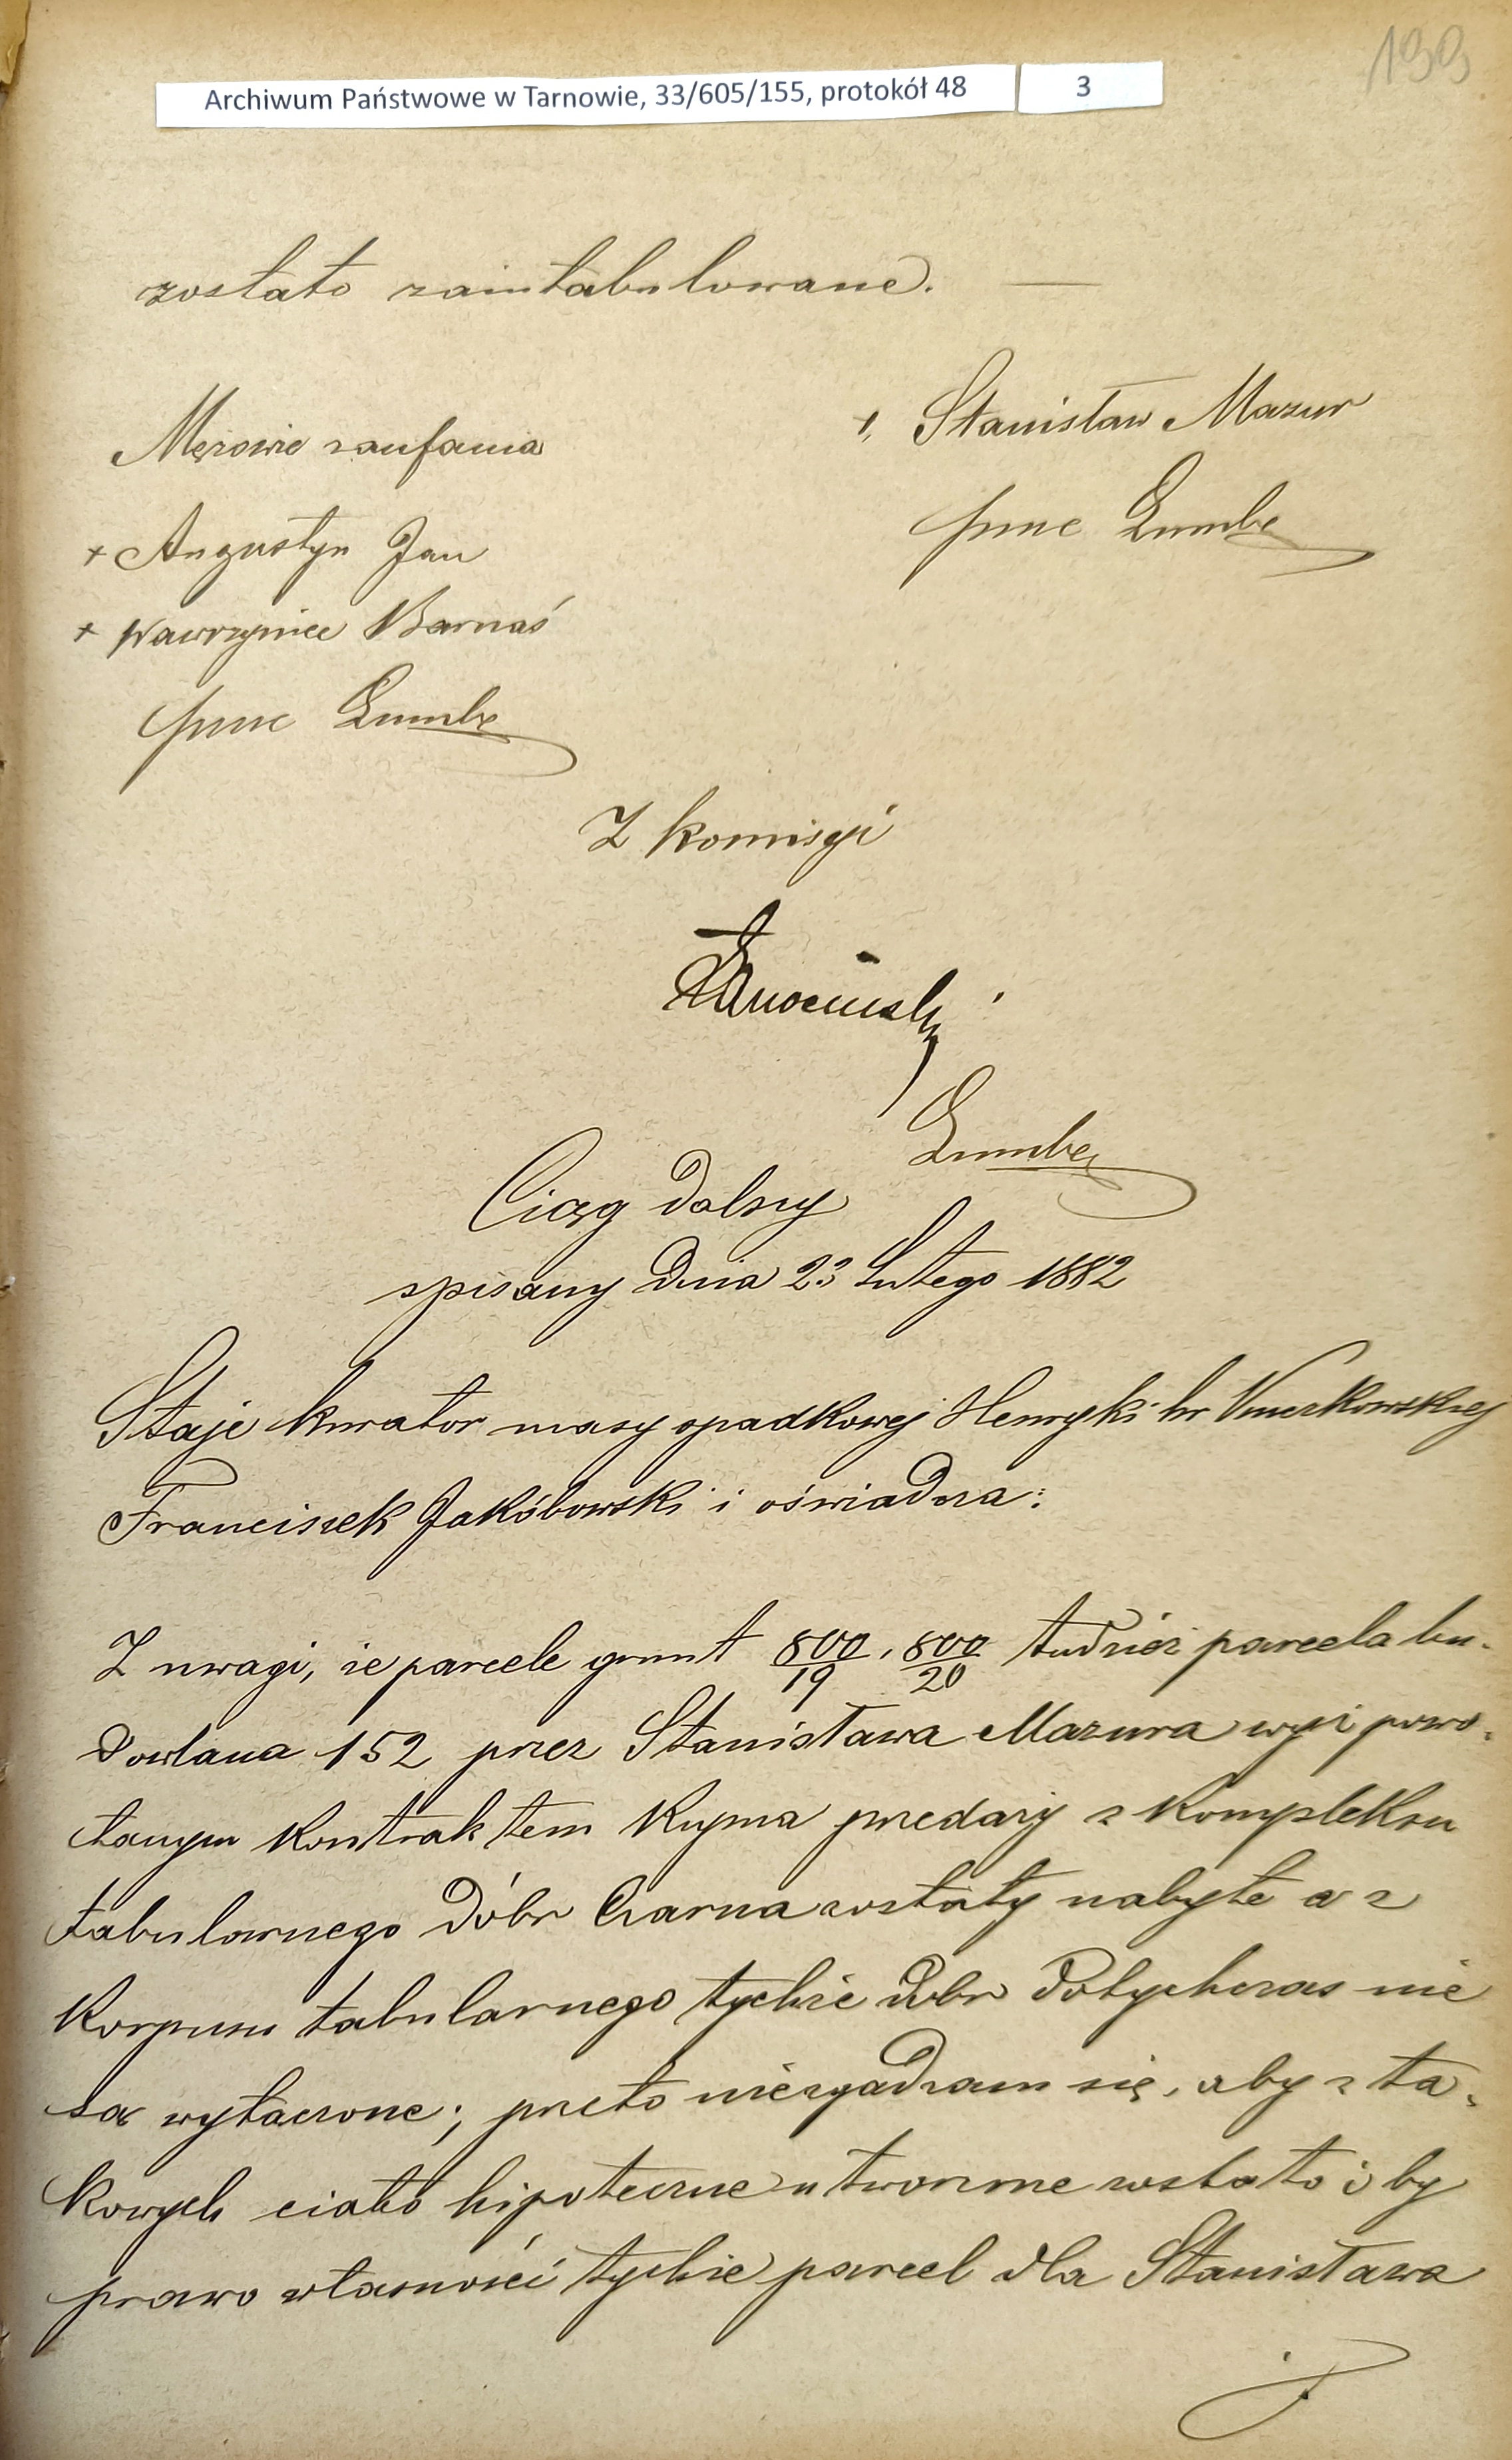 199
Archiwum Państwowe w Tarnowie, 33/605/155, protokół 48 3
zostało zaintabulowane. —
Mężowie zaufania
+ Augustyn Jan
+ Wawrzyniec Barnaś
+, Stanisław Mazur
Z komisyi
Ciąg dalszy
spisany dnia 23 Lutego 1882
Staje kurator masy spadkowej Henryki hr
Franciszek Jakóbowski i oświadcza:
Z uwagi, że parcele grunt 800/19, 800/20 tudzież parcela bu-
dowlana 152 przez Stanisława Mazura wyż powo-
łanym kontraktem kupna przedaży z kompleksu
tabularnego dóbr Czarna zostały nabyte a z
korpusu tabularnego tychże dóbr dotychczas nie
są wyłączone; przeto niezgadzam się, aby z ta-
kowych ciało hipoteczne utworzone zostało i by
prawo własności tychże parcel dla Stanisława